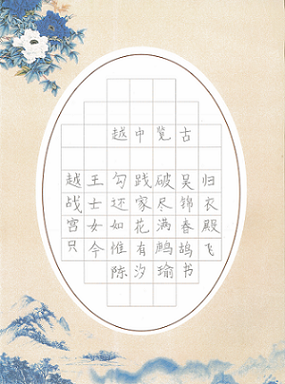 越中览古
越王勾践破吴归
战士还家尽锦衣
宫女如花满春殿
只今惟有鹧鸪飞
陈汐瑜书